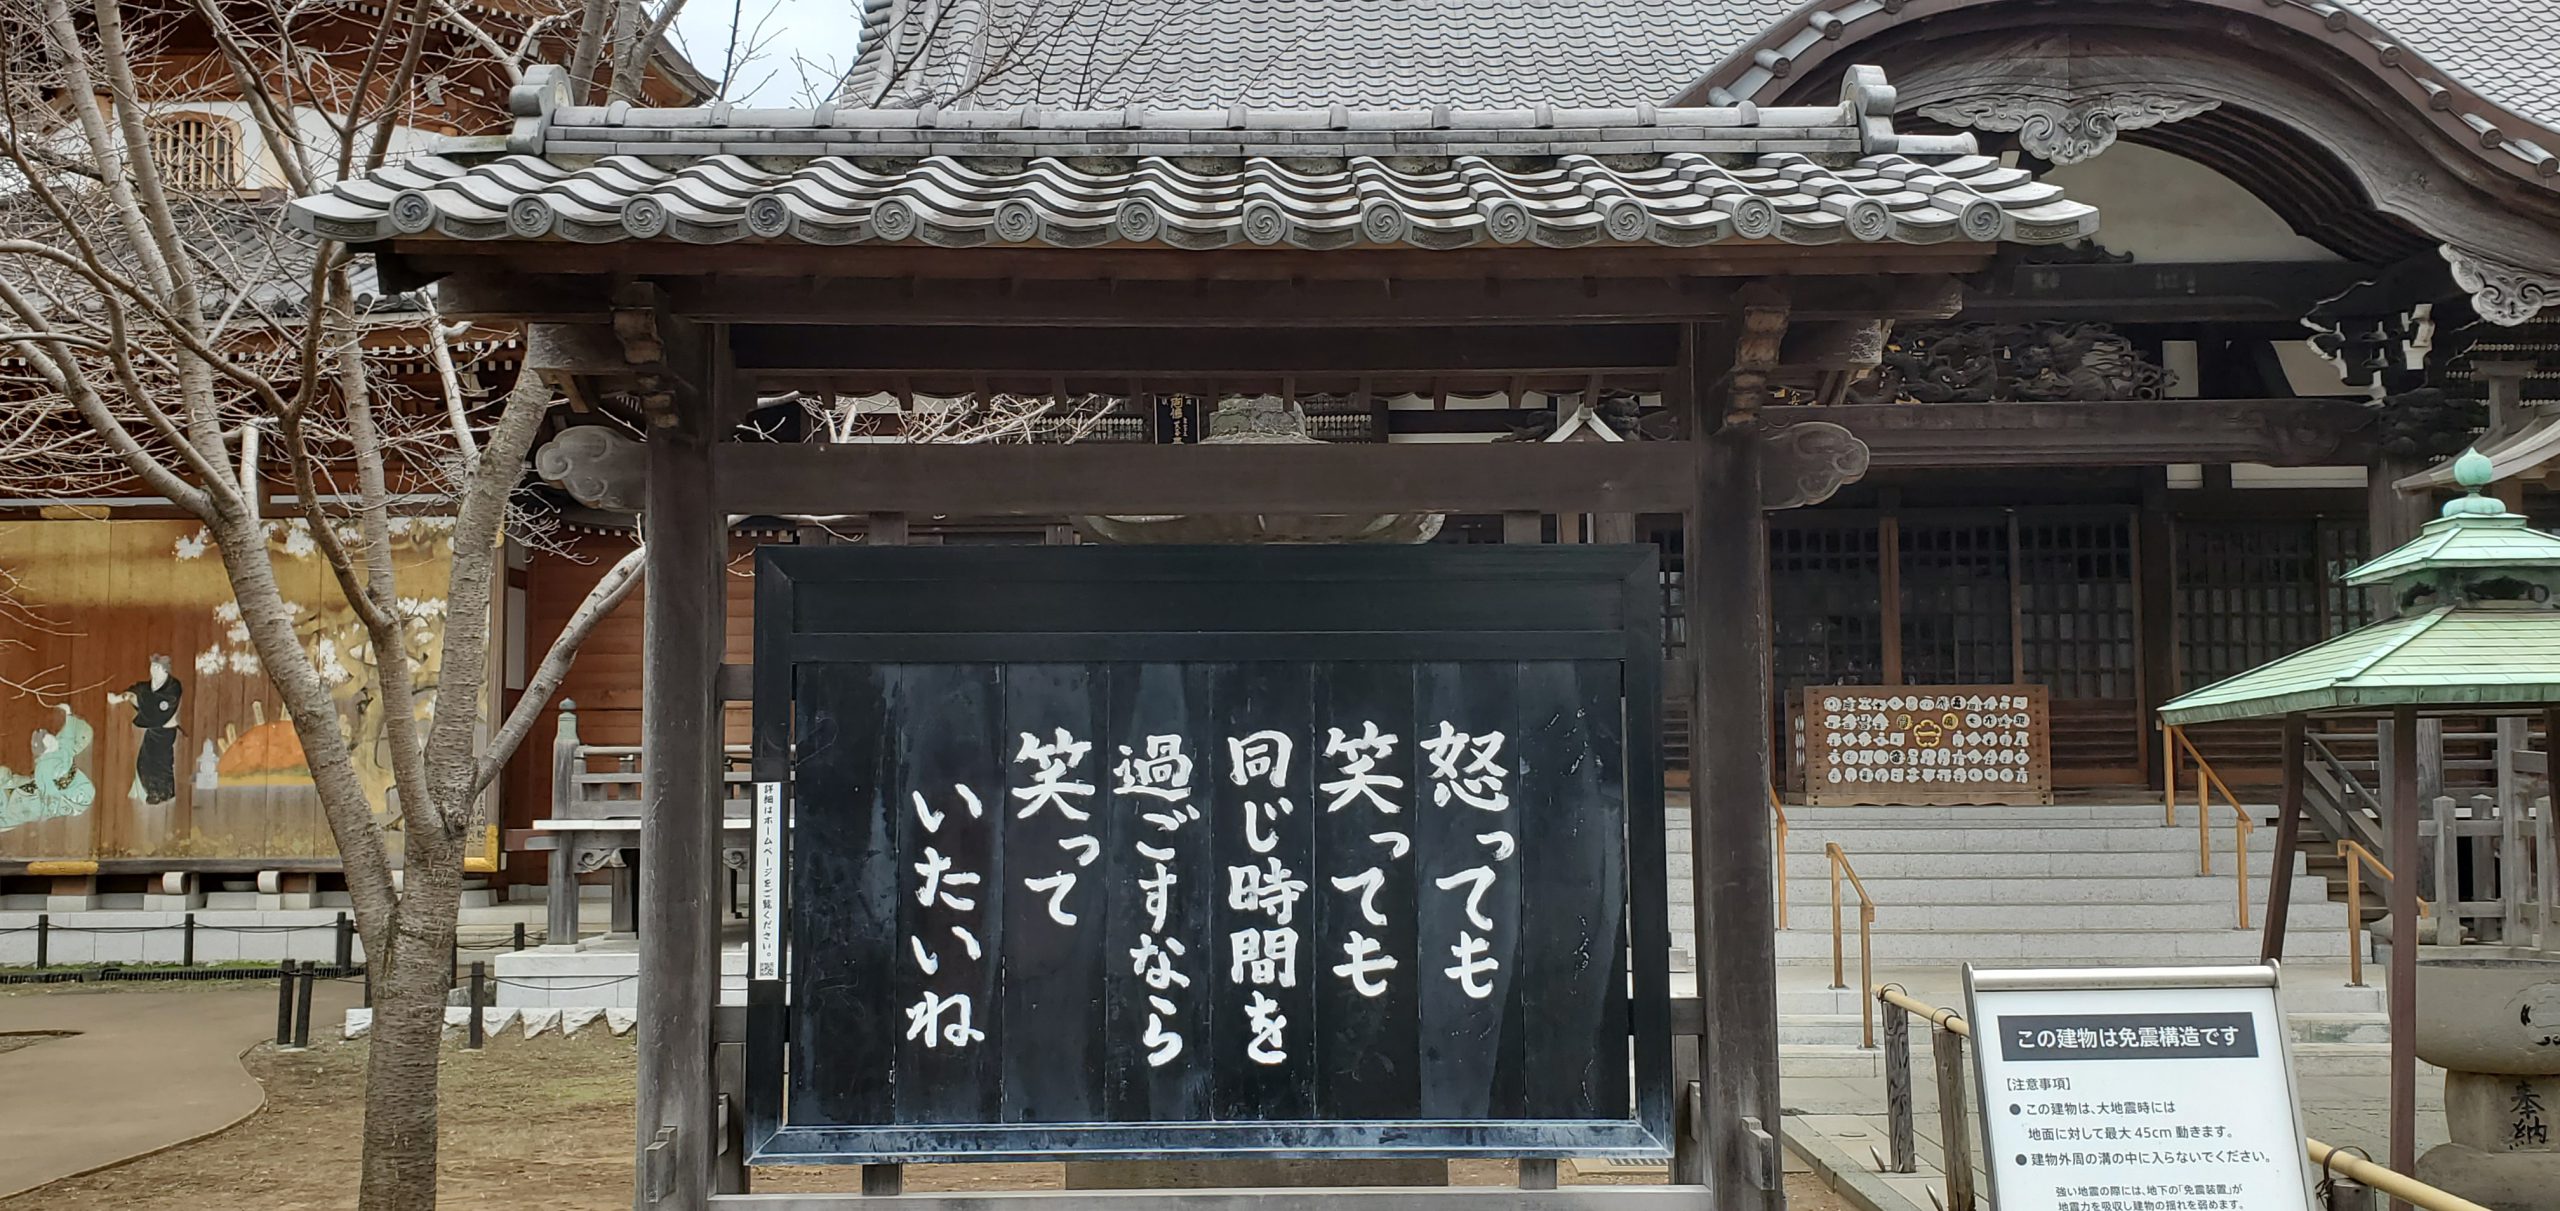 怒っても
笑っても
同じ時間を
過ごすなら
笑って
いたいね
詳細はホームページをご覧ください。
この建物は免震構造です
【注意事項】
● この建物は、大地震時には
地面に対して最大 45cm 動きます。
● 建物外周の溝の中に入らないでください。
強い地震の際には、地下の「免震装置」が
地震力を吸収し建物の揺れを弱めます。
奉納